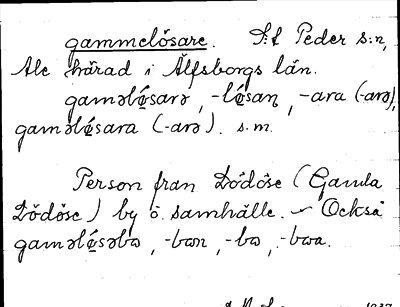 gammelösare. S:t Peder s:n,
Ale härad i Älfsborgs län.
gaməlǿsarə, -lǿsaṇ, -ara (-arə),
gaməlǿsara (-arə). s.m.
Person från Lödöse (Gamla
Lödöse) by o. samhälle. ~ Också
gaməlǿsəbɷ, -bɷn, -bɷ, -bɷa.